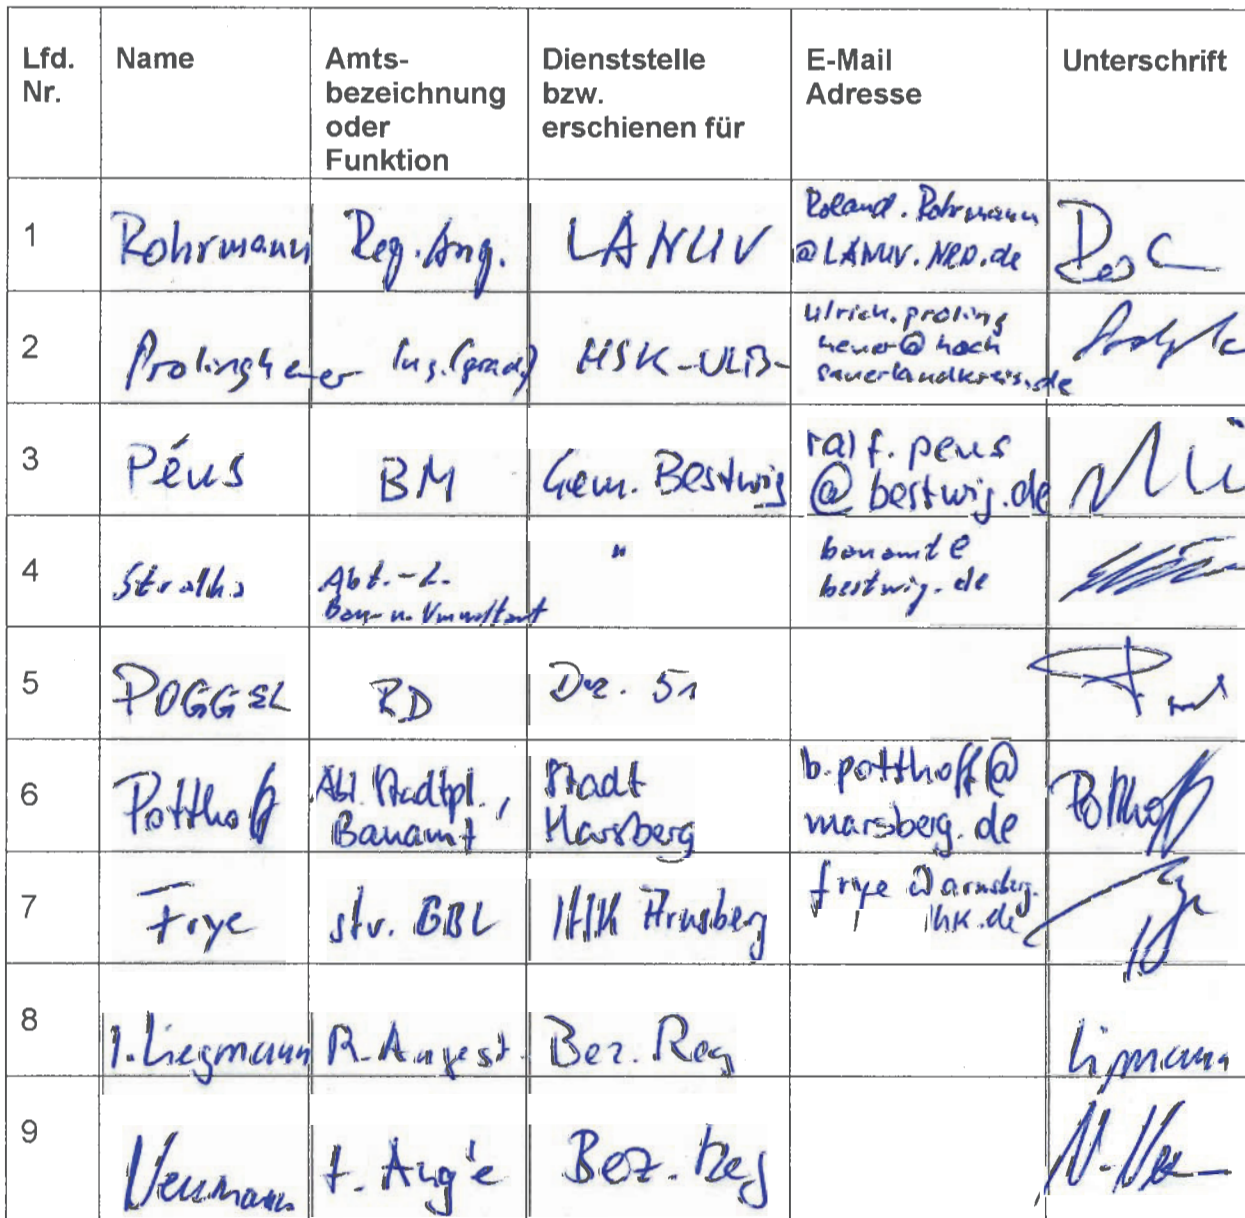 Lfd. Nr. Name Amts-bezeichnung oder Funktion Dienststelle bzw. erschienen für E-Mail Adresse Unterschrift
1 Rohrmann Reg. Ang. LANUV Roland.Rohrmann @LANUV.NRW.de
2 Prolingheuer Ing.(grad) HSK-ULB- ulrich.proling heuer@hoch sauerlandkreis.de
3 Péus BM Gem. Bestwig ralf.peus @bestwig.de
4 Abt.-L. Bau- u. Umweltamt " bauamt@ bestwig.de
5 POGGEL RD Dez. 51
6 Potthoff Abt. Stadtpl., Bauamt Stadt Marsberg b.potthoff@ marsberg.de Potthoff
7 Frye stv. GBL IHK Arnsberg frye@arnsberg. ihk.de
8 I. Liegmann R. Angest. Bez. Reg Liegmann
9 Neumann t. Ang'e Bez. Reg